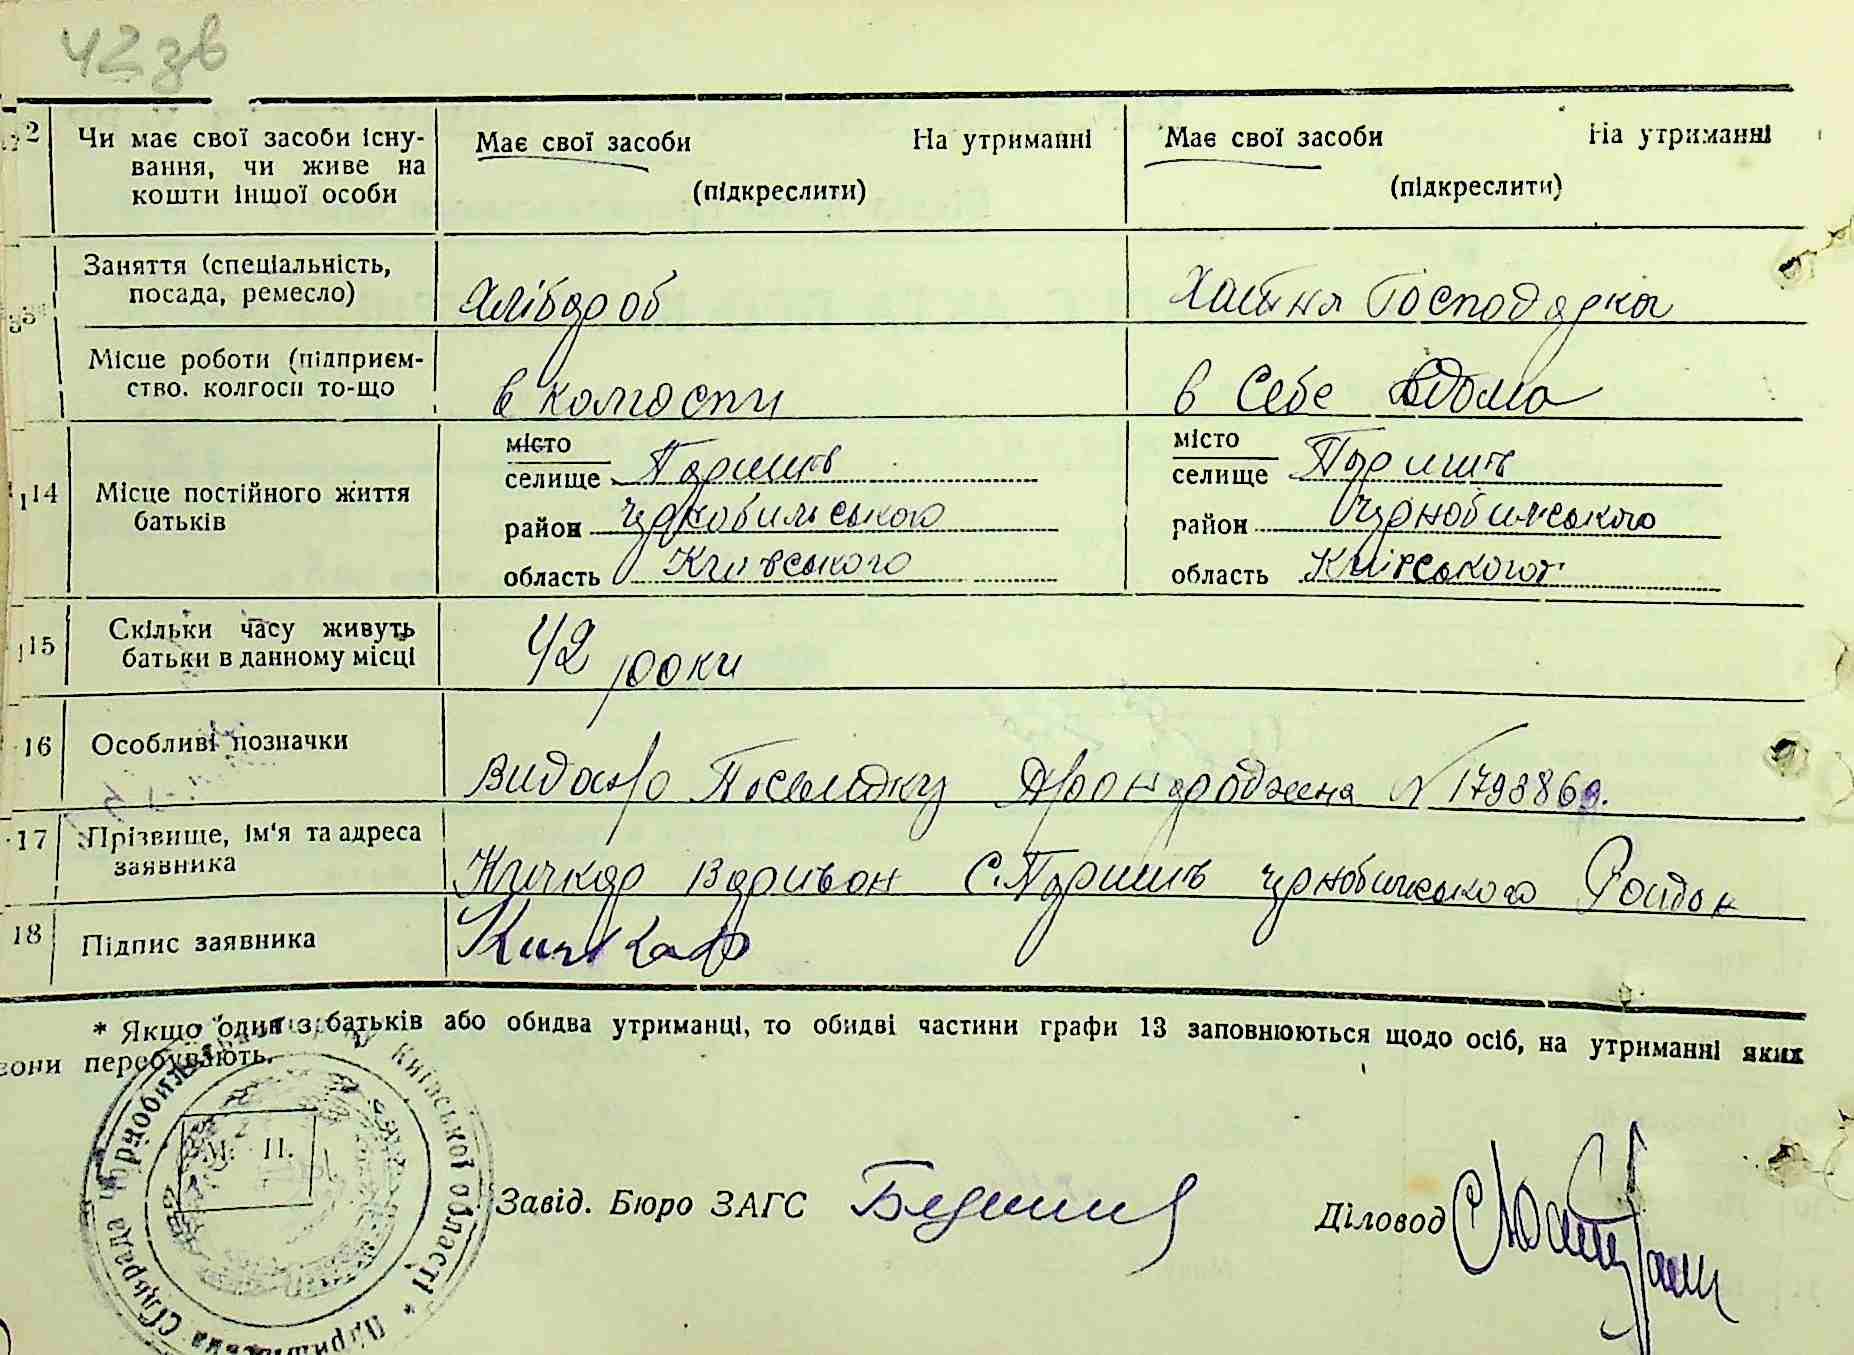 42 зв
12 Чи має свої засоби існу-
вання, чи живе на
кошти іншої особи
Має свої засоби На утриманні
(підкреслити)
Має свої засоби На утриманні
(підкреслити)
Заняття (спеціальність,
посада, ремесло)
Хлібороб
Хатня Господарка
Місце роботи (підприєм-
ство, колгосп то-що
в колгоспи
в Себе вдома
14 Місце постійного життя
батьків
місто
селище Паришів
район Чорнобильського
область Київського
місто
селище Паришів
район Чорнобильського
область Київського
15 Скільки часу живуть
батьки в данному місці
42 роки
16 Особливі позначки
Видано Посвідку Про народження N 179386
17 Прізвище, ім'я та адреса
заявника
Кичкар Варивон С. Паришів Чорнобильського Район
18 Підпис заявника
Кичкар
* Якщо один з батьків або обидва утриманці, то обидві частини графи 13 заповнюються щодо осіб, на утриманні яких
вони перебувають.
М. П.
Завід. Бюро ЗАГС
Діловод
Паришівська Сільрада Чорнобильського р-ну Київської області *